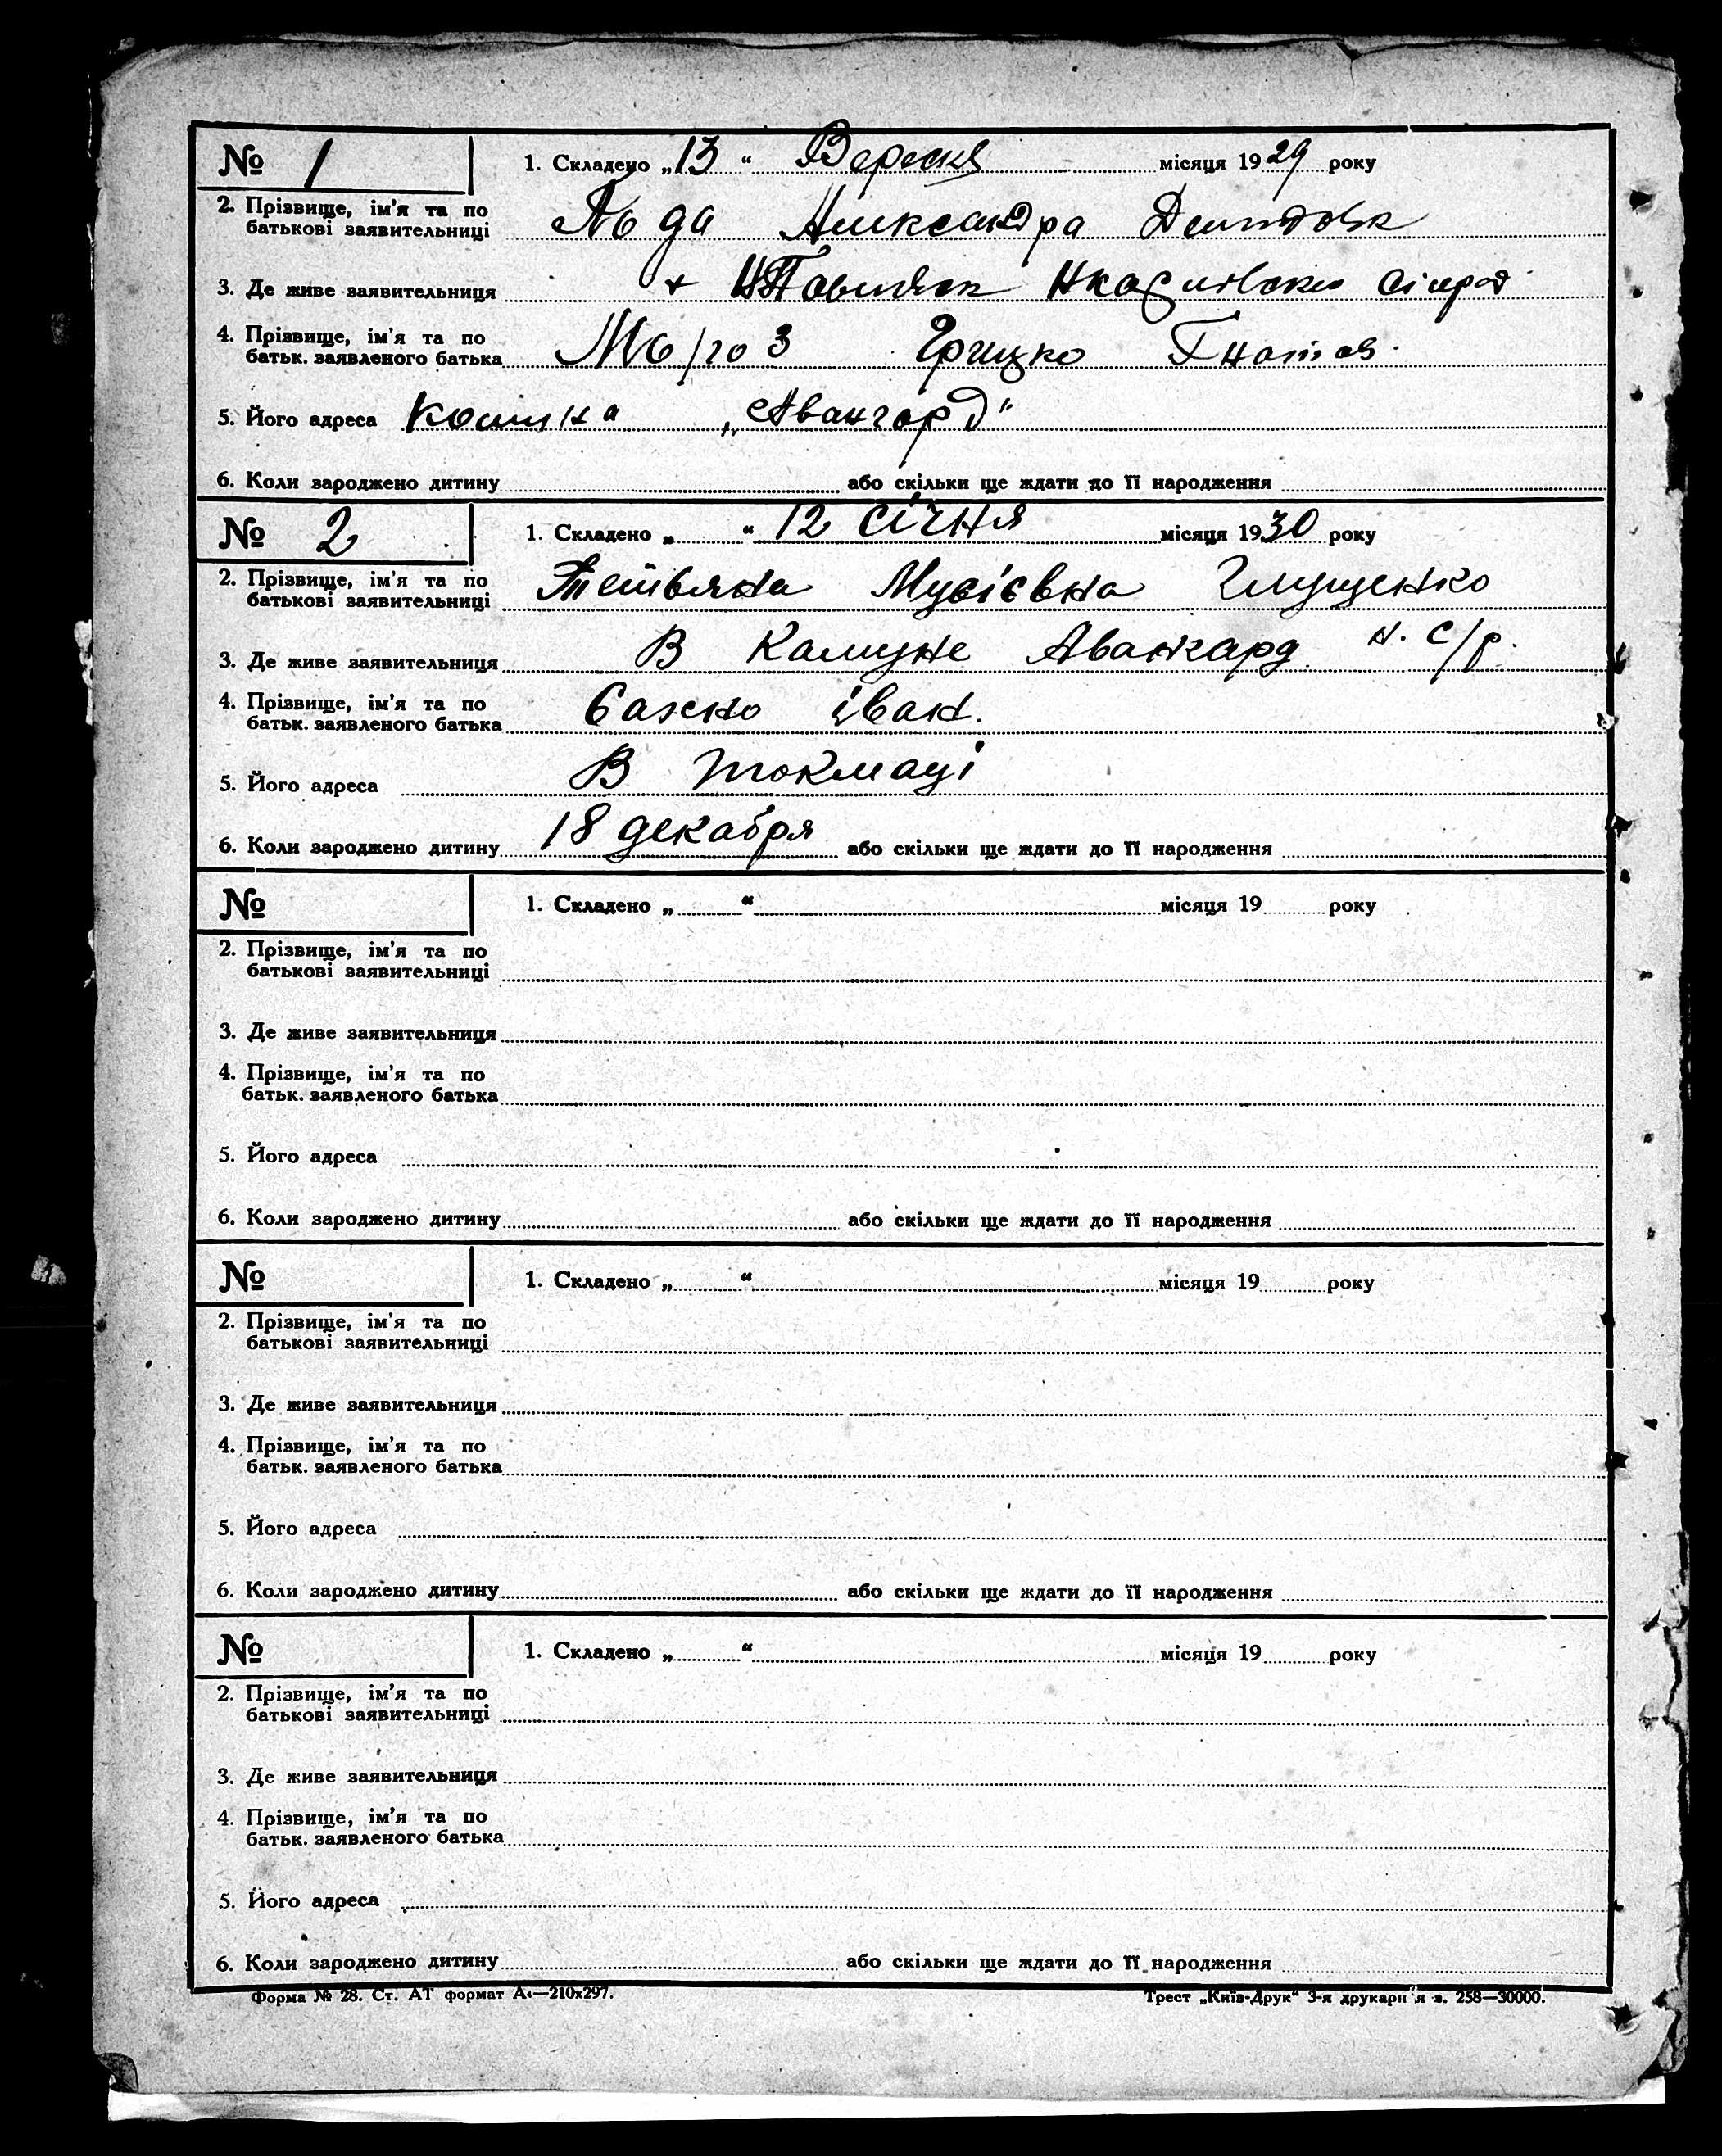 № 1
1. Складено „13“ Вересня місяця 1929 року
2. Прізвище, ім'я та по
батькові заявительниці
Александра
3. Де живе заявительниця
4. Прізвище, ім'я та по
батьк. заявленого батька
Мороз Грицко Гнатов.
5. Його адреса „Авангард“
6. Коли зароджено дитину або скільки ще ждати до її народження
№ 2
1. Складено „ “ 12 січня місяця 1930 року
2. Прізвище, ім'я та по
батькові заявительниці
Тетьяна Мусієвна Глущенко
3. Де живе заявительниця В Камуне Авангард н. с/р.
4. Прізвище, ім'я та по
батьк. заявленого батька
іван.
5. Його адреса В токмаці
6. Коли зароджено дитину 18 декабря або скільки ще ждати до її народження
№
1. Складено „ “ місяця 19 року
2. Прізвище, ім'я та по
батькові заявительниці
3. Де живе заявительниця
4. Прізвище, ім'я та по
батьк. заявленого батька
5. Його адреса
6. Коли зароджено дитину або скільки ще ждати до її народження
№
1. Складено „ “ місяця 19 року
2. Прізвище, ім'я та по
батькові заявительниці
3. Де живе заявительниця
4. Прізвище, ім'я та по
батьк. заявленого батька
5. Його адреса
6. Коли зароджено дитину або скільки ще ждати до її народження
№
1. Складено „ “ місяця 19 року
2. Прізвище, ім'я та по
батькові заявительниці
3. Де живе заявительниця
4. Прізвище, ім'я та по
батьк. заявленого батька
5. Його адреса
6. Коли зароджено дитину або скільки ще ждати до її народження
Форма № 28. Ст. АТ формат А4—210х297. Трест „Київ-Друк“ 3-я друкарня з. 258—30000.